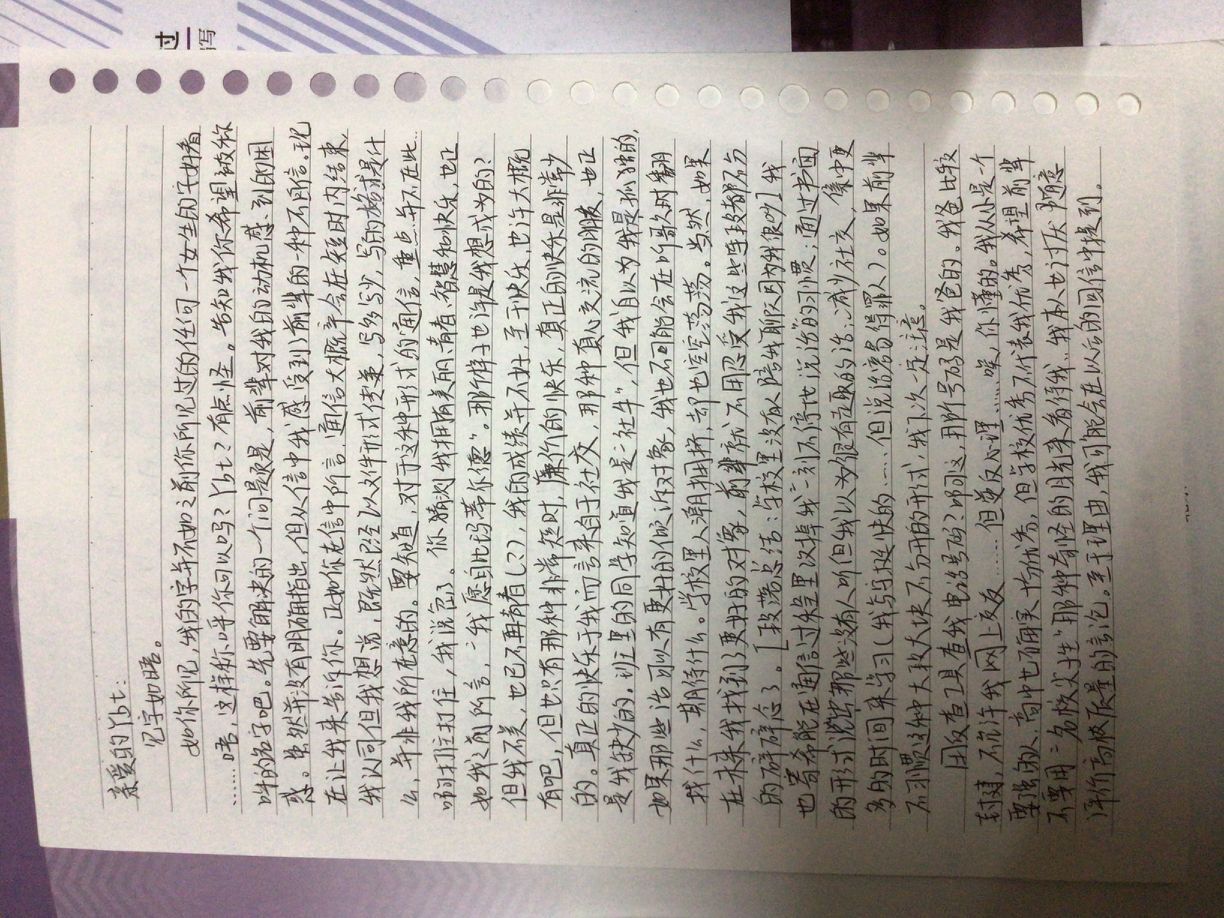 亲爱的Ybt：
见字如晤。
如你所见，我的字并不如之前你所见过的任何一个女生的字好看
……唔，这样称呼你可以吗？Ybt？有点怪。告知我你希望被称
呼的名字吧。先要解决的一个问题是，前辈对我的动机感到的困
惑。虽然并没有明确指出，但从信中我感受到前辈的一种不自信。现
在让我来告诉你。正如你在信中所言，通信大概率会在短时内结束，
我认同但我想说，既然已经以文件形式传递，写多写少，写的格式是什
么，并非我所在意的。要知道，对于这种形式的通信，重点并不在此…
哟打住打住，我说多了。你猜测我拥有美丽、青春、智慧和快乐，也正
如我之前所言，“我愿自比玛蒂尔德”。那个样子也许是我想成为的？
但我不美，也已不再青春（？），我的成绩并不好，至于快乐，也许大概
有吧，但也只有那种非常短时，廉价的快乐，真正的快乐是非常少
的。真正的快乐于我而言来自于社交，那种真心交流的朋友，也正
是我缺少的。班里的同学知道我是“社牛”，但我自以为我是孤独的，
如果那些话可以有更好的倾诉对象，我也不可能会在听歌时翻
找什么，期待什么。学校里人潮拥挤，却也空空荡荡。当然，如果
在未来我找到了更好的对象，前辈就不用忍受我这些连段都不分
的碎碎念了。[段落总结：学校里没有人陪我聊天因为我很吵]我
也寄希能在通信过程里改掉我“一刻不停地说话”的习惯；通过书面
的形式说出那些没有人听但我以为很有趣的话；减少社交，集中更
多的时间来学习（我写字挺快的……但说话容易得罪人）。如果前辈
不习惯这种大段大块不分开的形式，我下次一定注意。
用反查工具查我电话号码？哟这，那个号码是我爸的。我爸比较
封建，不允许我网上交友……但逆反心理……唉，你懂的。我从小是一个
要强的人，高中也确实均优秀，但学校优秀不代表我优秀，希望前辈
不要用“名校尖子生”那种奇怪的目光来看待我…我本人也讨厌随意
评价高校质量的言论。至于理由，我可能会在以后的回信中提到。
过
写